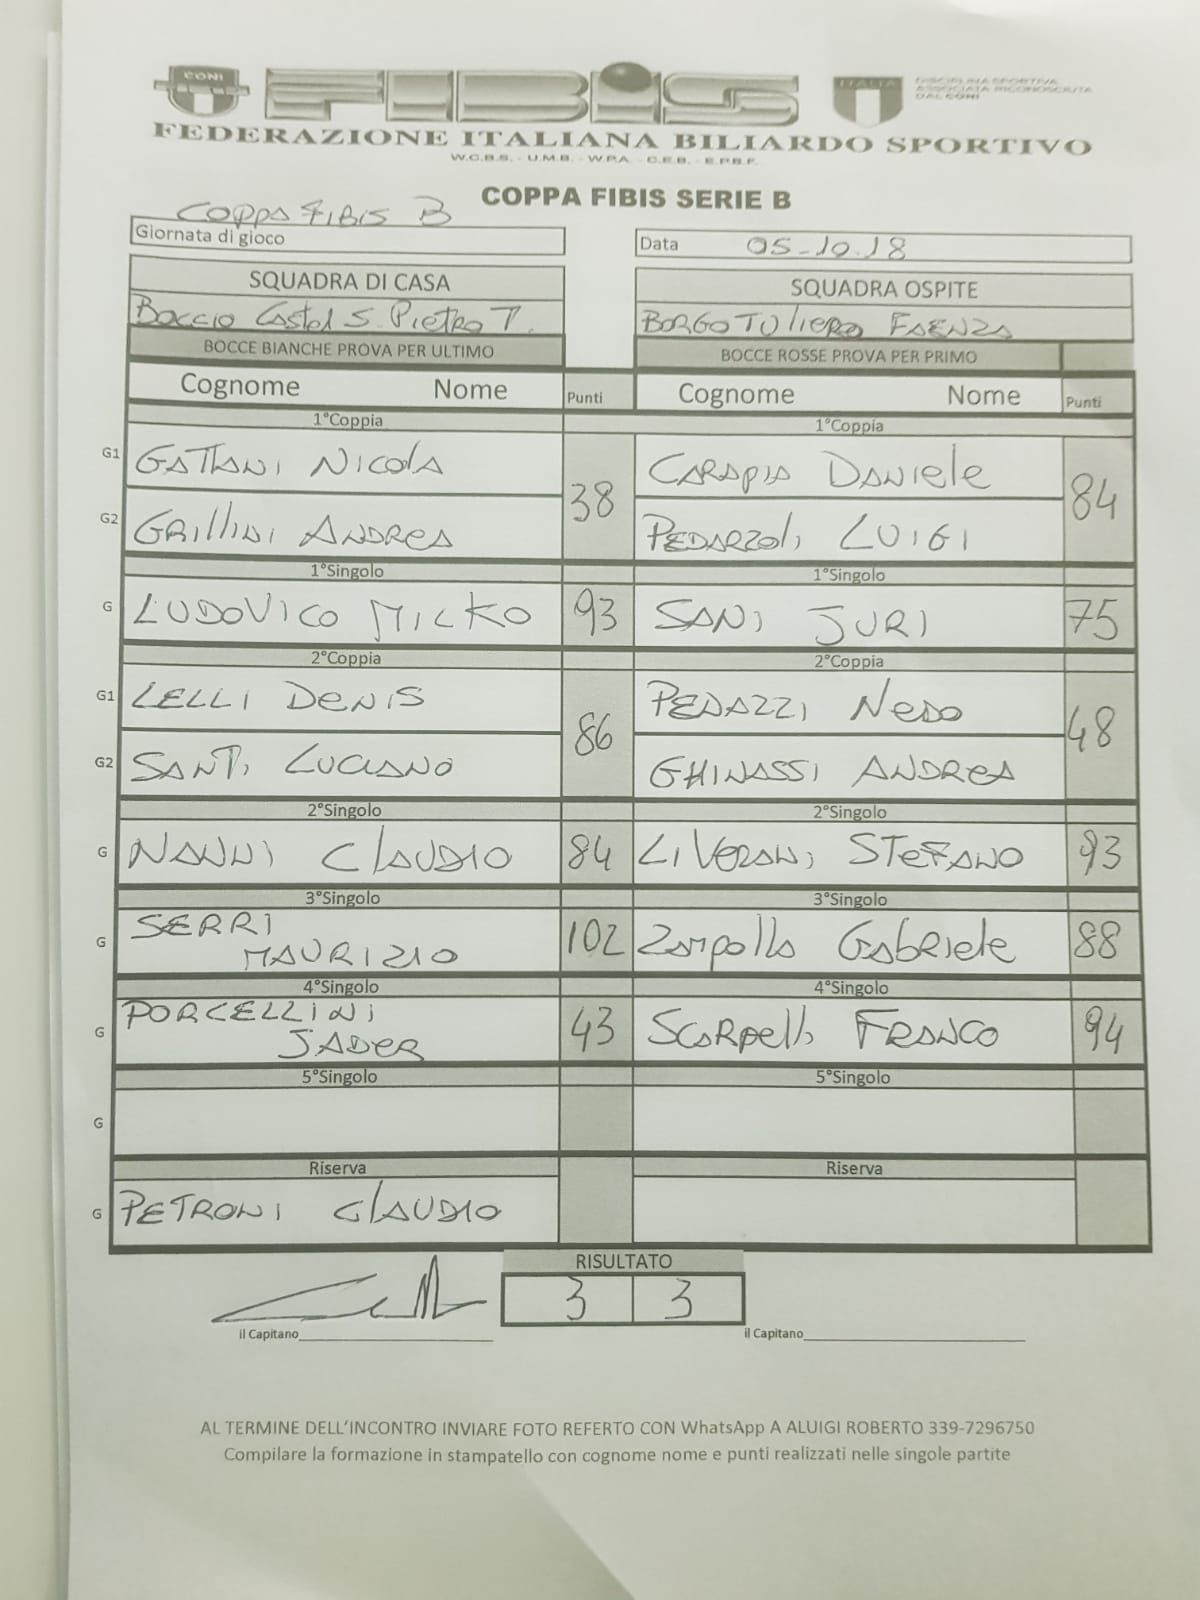 CONI
FIBiS
ITALIA
DISCIPLINA SPORTIVA
ASSOCIATA RICONOSCIUTA
DAL CONI
FEDERAZIONE ITALIANA BILIARDO SPORTIVO
W.C.B.S. - U.M.B. - W.P.A. - C.E.B. - E.P.B.F.
COPPA FIBIS SERIE B
COPPA FIBIS B
Giornata di gioco
Data 05-10.18
SQUADRA DI CASA SQUADRA OSPITE
Boccio Castel S. Pietro T. BORGO TUliero FAENZA
BOCCE BIANCHE PROVA PER ULTIMO BOCCE ROSSE PROVA PER PRIMO
Cognome Nome Punti Cognome Nome Punti
1°Coppia 1°Coppia
G1 GATTANI NICOLA CARAPIA DANIELE
38 84
G2 GRILLINI ANDREA PEDARZOLI LUIGI
1°Singolo 1°Singolo
G LUDOVICO MICKO 93 SANI JURI 75
2°Coppia 2°Coppia
G1 LELLI DENIS PEDAZZI NEDO
86 48
G2 SANTI LUCIANO GHINASSI ANDREA
2°Singolo 2°Singolo
G NANNI CLAUDIO 84 LIVERANI STEFANO 93
3°Singolo 3°Singolo
G SERRI MAURIZIO 102 Zampollo Gabriele 88
4°Singolo 4°Singolo
G PORCELLINI JADER 43 SCARPELLO FRANCO 94
5°Singolo 5°Singolo
G
Riserva Riserva
G PETRONI CLAUDIO
RISULTATO
3 3
il Capitano il Capitano
AL TERMINE DELL'INCONTRO INVIARE FOTO REFERTO CON WhatsApp A ALUIGI ROBERTO 339-7296750
Compilare la formazione in stampatello con cognome nome e punti realizzati nelle singole partite